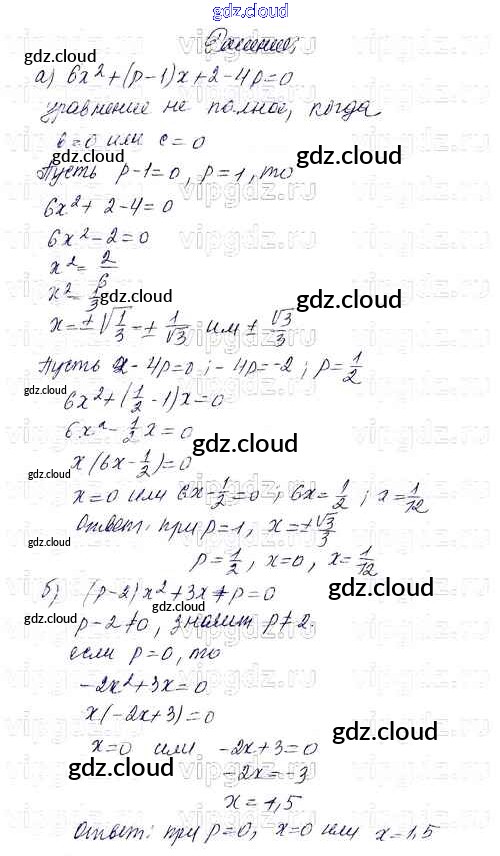 gdz.cloud
Решение:
gdz.cloud
а) 6x² + (p-1)x + 2 - 4p = 0
уравнение не полное, когда
в=0 или с = 0
gdz.cloud
gdz.cloud
Пусть p-1=0, p=1, то
6x² + 2 - 4 = 0
6x² - 2 = 0
x² = 2/6
x² = 1/3
gdz.cloud
x = ±√1/3 = ± 1/√3 или ± √3/3
gdz.cloud
Пусть 2 - 4p = 0; -4p = -2; p = 1/2
gdz.cloud
6x² + (1/2 - 1)x = 0
6x² - 1/2 x = 0
gdz.cloud
x(6x - 1/2) = 0
gdz.cloud
x = 0 или 6x - 1/2 = 0; 6x = 1/2; x = 1/12
Ответ: при p=1, x = ± √3/3
gdz.cloud
p = 1/2, x=0, x = 1/12
б) (p-2)x² + 3x + p = 0
gdz.cloud
gdz.cloud
p-2≠0, значит p≠2.
если p=0, то
-2x² + 3x = 0
x(-2x+3) = 0
gdz.cloud
x=0 или -2x+3=0
gdz.cloud
-2x = -3
x = 1,5
gdz.cloud
Ответ: при p=0, x=0 или x=1,5